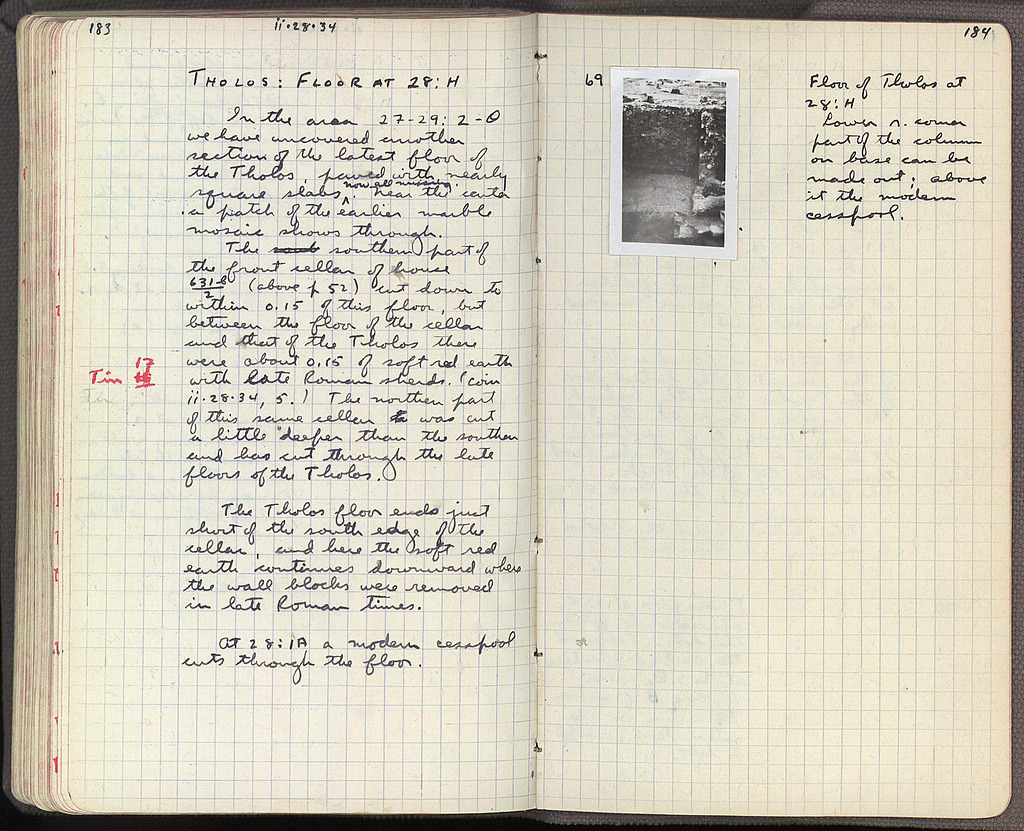 183
ii·28·34
THOLOS: FLOOR AT 28:H
In the area 27-29: Z-Θ
we have uncovered another
section of the latest floor of
the Tholos, paved with nearly
square slabs, now all missing. Near the center
a patch of the earlier marble
mosaic shows through.
The southern part of
the front cellar of house
631-8/2 (above p 52) cut down to
within 0.15 of this floor, but
between the floor of the cellar
and that of the Tholos there
were about 0.15 of soft red earth
with late Roman sherds. (coin
ii·28·34, 5.) The northern part
of this same cellar was cut
a little deeper than the southern
and has cut through the late
floors of the Tholos.
Tin 17
The Tholos floor ends just
short of the south edge of the
cellar, and here the soft red
earth continues downward where
the wall blocks were removed
in late Roman times.
At 28:IA a modern cesspool
cuts through the floor.
184
69
Floor of Tholos at
28:H
Lower r. corner
part of the column
on base can be
made out; above
it the modern
cesspool.